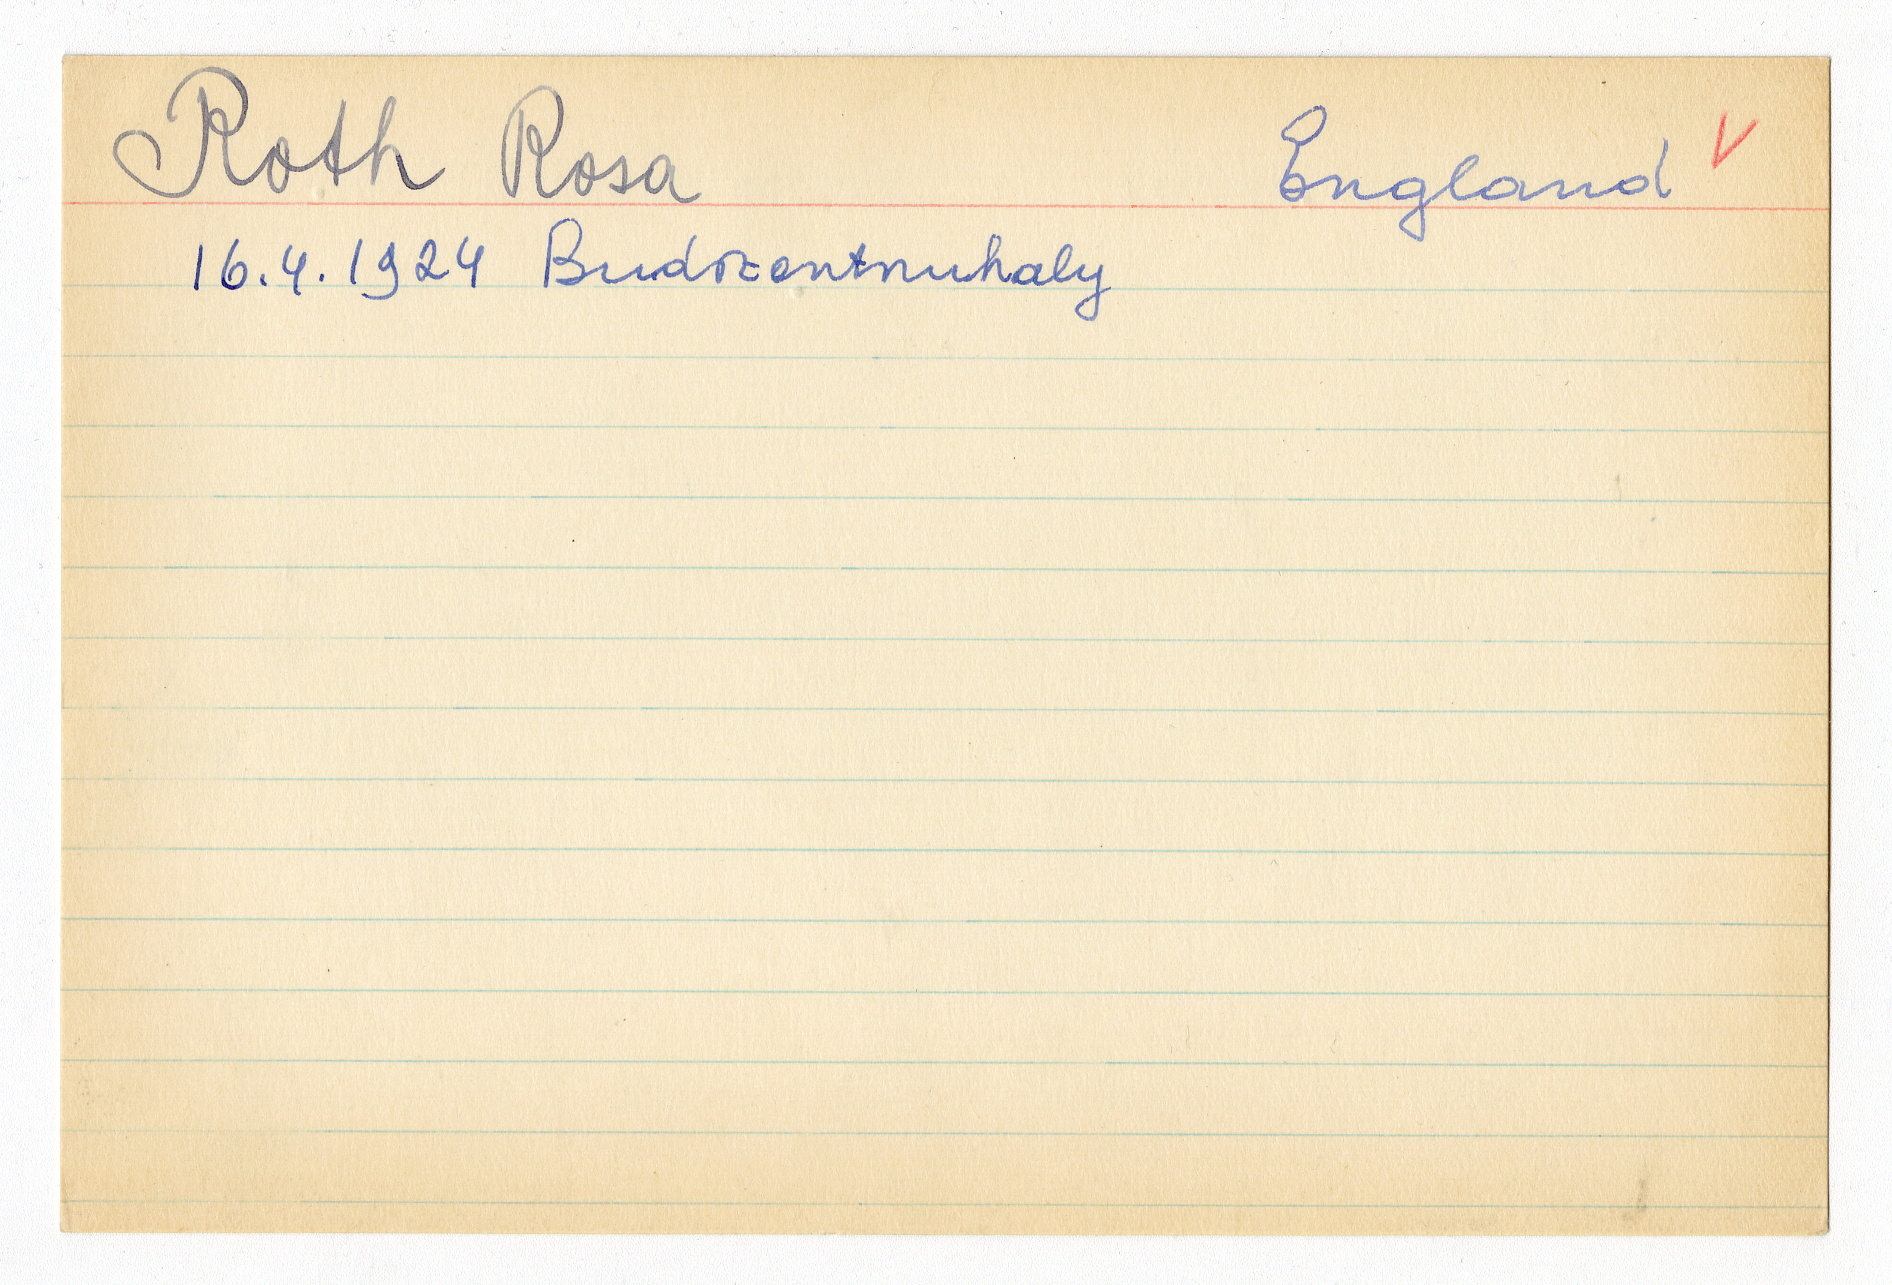 Roth Rosa England V
16.4.1924 Budszentmuhaly